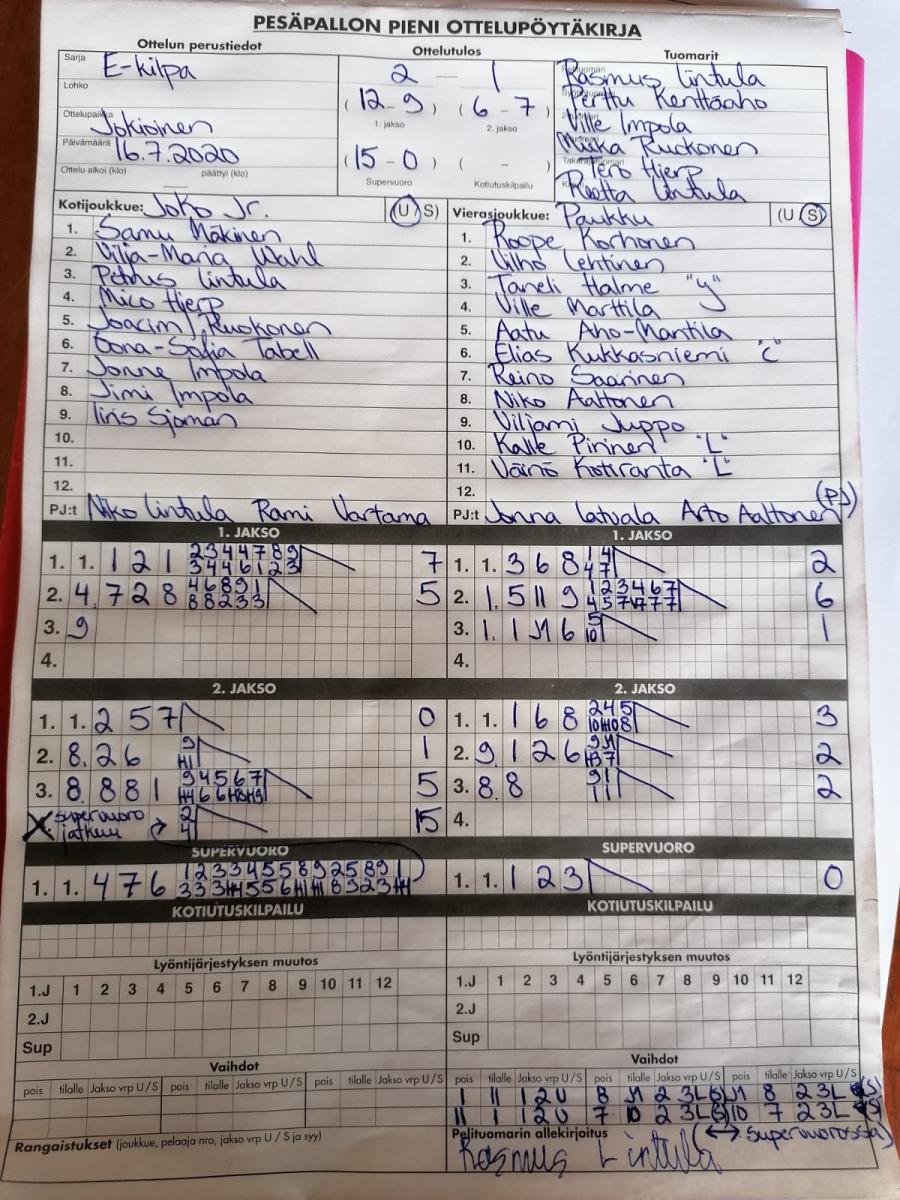 PESÄPALLON PIENI OTTELUPÖYTÄKIRJA
Ottelun perustiedot
Ottelutulos
Tuomarit
Sarja E-kilpa
Lohko
Ottelupaikka Jokioinen
Päivämäärä 16.7.2020
Ottelu alkoi (klo) päättyi (klo)
2 — 1
(12-9) (6-7)
1. jakso 2. jakso
(15-0) ( - )
Supervuoro Kotiutuskilpailu
Rasmus Lintula
Perttu Kenttäaho
Ville Impola
Miika Ruokonen
Tero Hjerp
Reetta Lintula
Kotijoukkue: Joko Jr. (U S)
1. Samu Mäkinen
2. Vilja-Maria Wahl
3. Petrus Lintula
4. Mico Hjerp
5. Joacim Ruokonen
6. Oona-Sofia Tabell
7. Jonne Impola
8. Jimi Impola
9. Iiris Sjöman
10.
11.
12.
PJ:t Niko Lintula Rami Vartama
Vierasjoukkue: Paukku (U S)
1. Roope Korhonen
2. Vilho Lehtinen
3. Taneli Halme "y"
4. Ville Marttila
5. Aatu Aho-Mantila
6. Elias Kukkasniemi "C"
7. Reino Saarinen
8. Niko Aaltonen
9. Viljami Juppo
10. Kalle Pirinen "L"
11. Väinö Kotiranta "L"
12.
PJ:t Jonna Latvala Arto Aaltonen
1. JAKSO
1. 1. 1 2 1 2 3 4 4 7 8 9 7
3 4 4 6 1 2 3
2. 4. 7 2 8 4 6 8 9 1 5
8 8 2 3 3
3. 9
4.
1. JAKSO
1. 1. 3 6 8 1 4 2
4 7
2. 1. 5 11 9 1 2 3 4 6 7 6
3. 1. 1 6 5 1
10
4.
2. JAKSO
1. 1. 2 5 7 0
2. 8. 2 6 9 1
3. 8. 8 8 1 9 4 5 6 7 5
supervuoro 2 15
jatkuu 4
2. JAKSO
1. 1. 1 6 8 2 4 5 3
2. 9. 1 2 6 2
3. 8. 8 9 1 2
4.
SUPERVUORO
1. 1. 4 7 6 1 2 3 3 4 5 5 8 9 2 5 8 9 1
SUPERVUORO
1. 1. 1 2 3 0
KOTIUTUSKILPAILU
KOTIUTUSKILPAILU
Lyöntijärjestyksen muutos
1.J 1 2 3 4 5 6 7 8 9 10 11 12
2.J
Sup
Lyöntijärjestyksen muutos
1.J 1 2 3 4 5 6 7 8 9 10 11 12
2.J
Sup
Vaihdot
pois tilalle Jakso vrp U/S pois tilalle Jakso vrp U/S pois tilalle Jakso vrp U/S
Rangaistukset (joukkue, pelaaja nro, jakso vrp U / S ja syy)
Vaihdot
pois tilalle Jakso vrp U/S pois tilalle Jakso vrp U/S pois tilalle Jakso vrp U/S
1 11 1 2 U 8 11 2 3L(S) 11 8 2 3L (S)
11 1 1 2 U 7 10 2 3L(S) 10 7 2 3L (S)
Pelituomarin allekirjoitus (↔ supervuorossa)
Rasmus Lintula